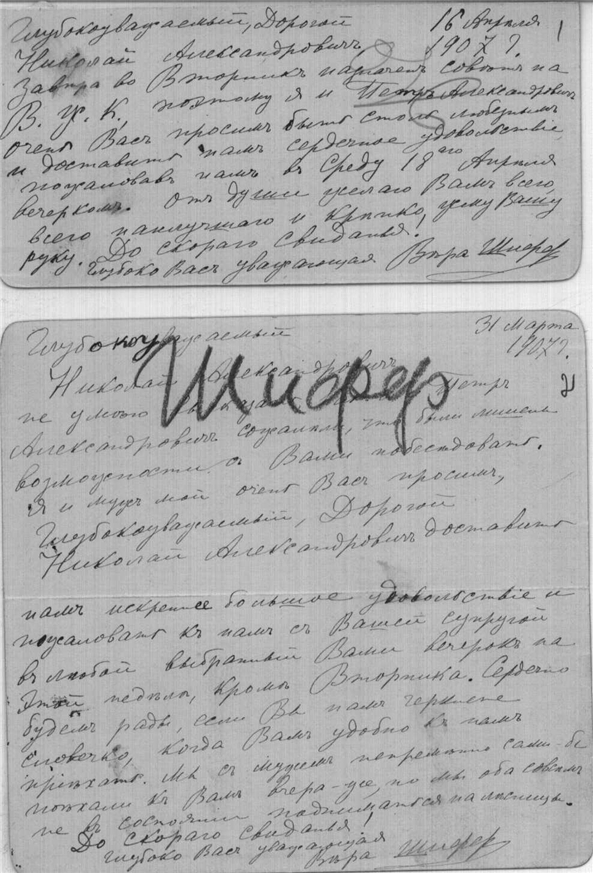 Глубокоуважаемый, Дорогой
16 Апрѣля
1907 г.
1
Николай Александровичъ,
Завтра во Вторникъ назначенъ совѣтъ на
В. У. К., поэтому я и Петръ Александровичъ
очень Васъ просимъ быть столь любезнымъ
и доставить намъ сердечное удовольствіе,
пожаловавъ къ намъ въ Среду 18аго Апрѣля
вечеркомъ. Отъ души желаю Вамъ всего,
всего наилучшаго и крѣпко жму Вашу
руку. До скораго свиданья!
Глубоко Васъ уважающая Вѣра Шифферъ
31 Марта
1907 г.
2
Глубокоуважаемый
Шифферъ
Николай Александровичъ,
не умѣю Петръ
Александровичъ сожалѣли, что были лишены
возможности съ Вами побесѣдовать.
Я и мужъ мой очень Васъ просимъ,
Глубокоуважаемый, Дорогой
Николай Александровичъ доставить
намъ искреннее большое удовольствіе и
пожаловать къ намъ съ Вашей супругой
въ любой выбранный Вами вечерокъ на
этой недѣлѣ, кромѣ Вторника. Сердечно
будемъ рады, если Вы намъ черкнете
словечко, когда Вамъ удобно къ намъ
пріѣхать. Мы съ мужемъ непремѣнно сами-бы
поѣхали къ Вамъ вчера-же, но мы оба совсѣмъ
не въ состояніи подниматься на лѣстницы.
До скораго свиданья!
Глубоко Васъ уважающая
Вѣра Шифферъ